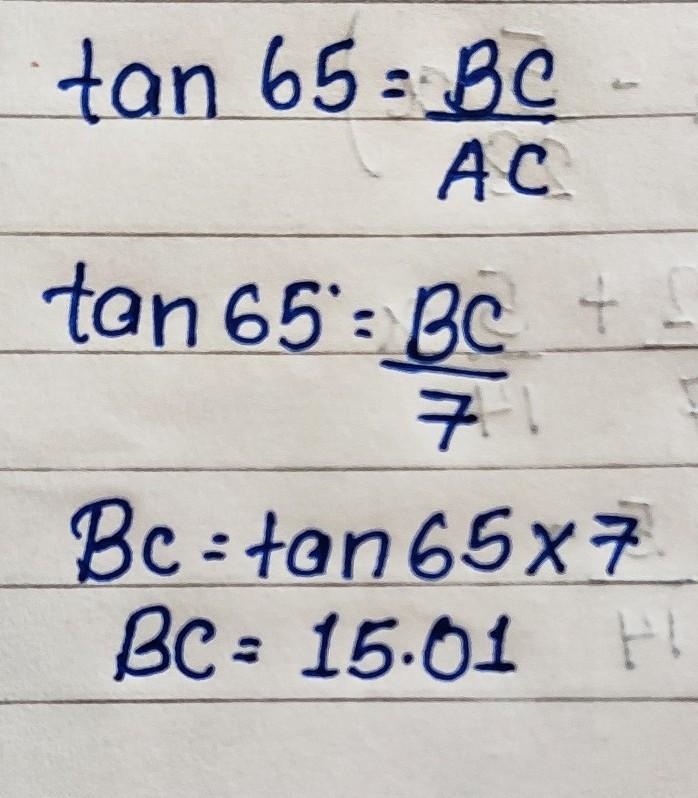 tan 65 = BC
AC
tan 65° = BC
7
BC = tan 65 × 7
BC = 15.01